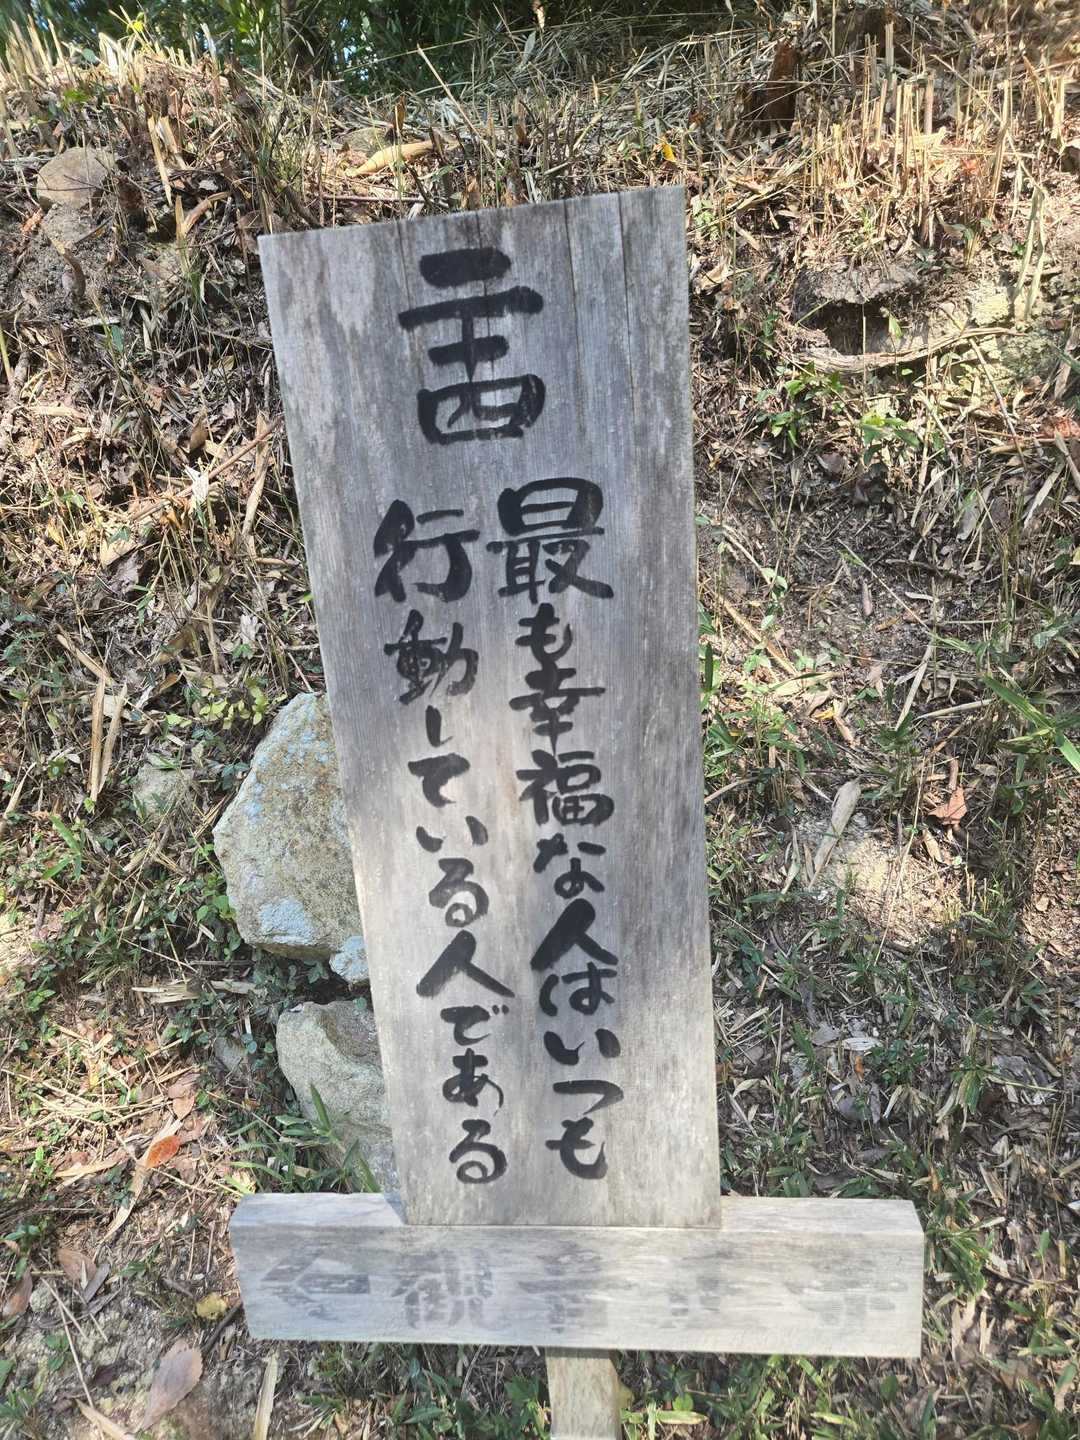 二十四
最も幸福な人はいつも
行動している人である
観音